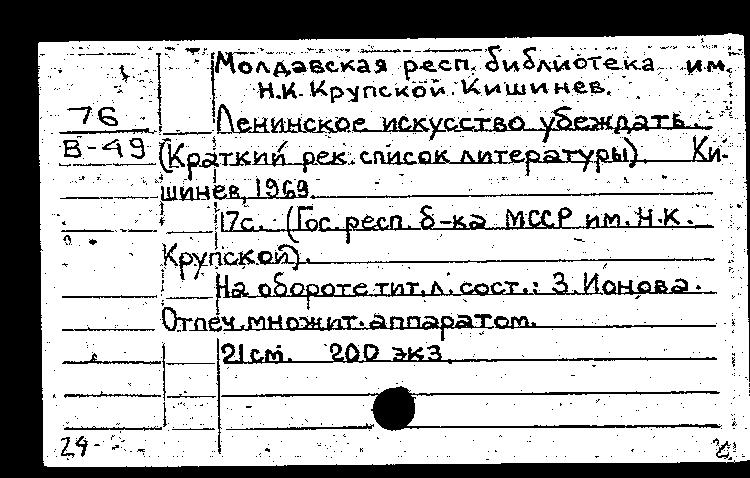 Молдавская респ. библиотека им.
Н.К. Крупской. Кишинев.
76
Ленинское искусство убеждать.
В-49
(Краткий рек. список литературы). Ки-
шинев, 1969.
17с. (Гос. респ. б-ка МССР им. Н.К.
Крупской).
На обороте тит. л. сост.: З. Ионова.
Отпеч. множит. аппаратом.
21 см. 200 экз.
24-